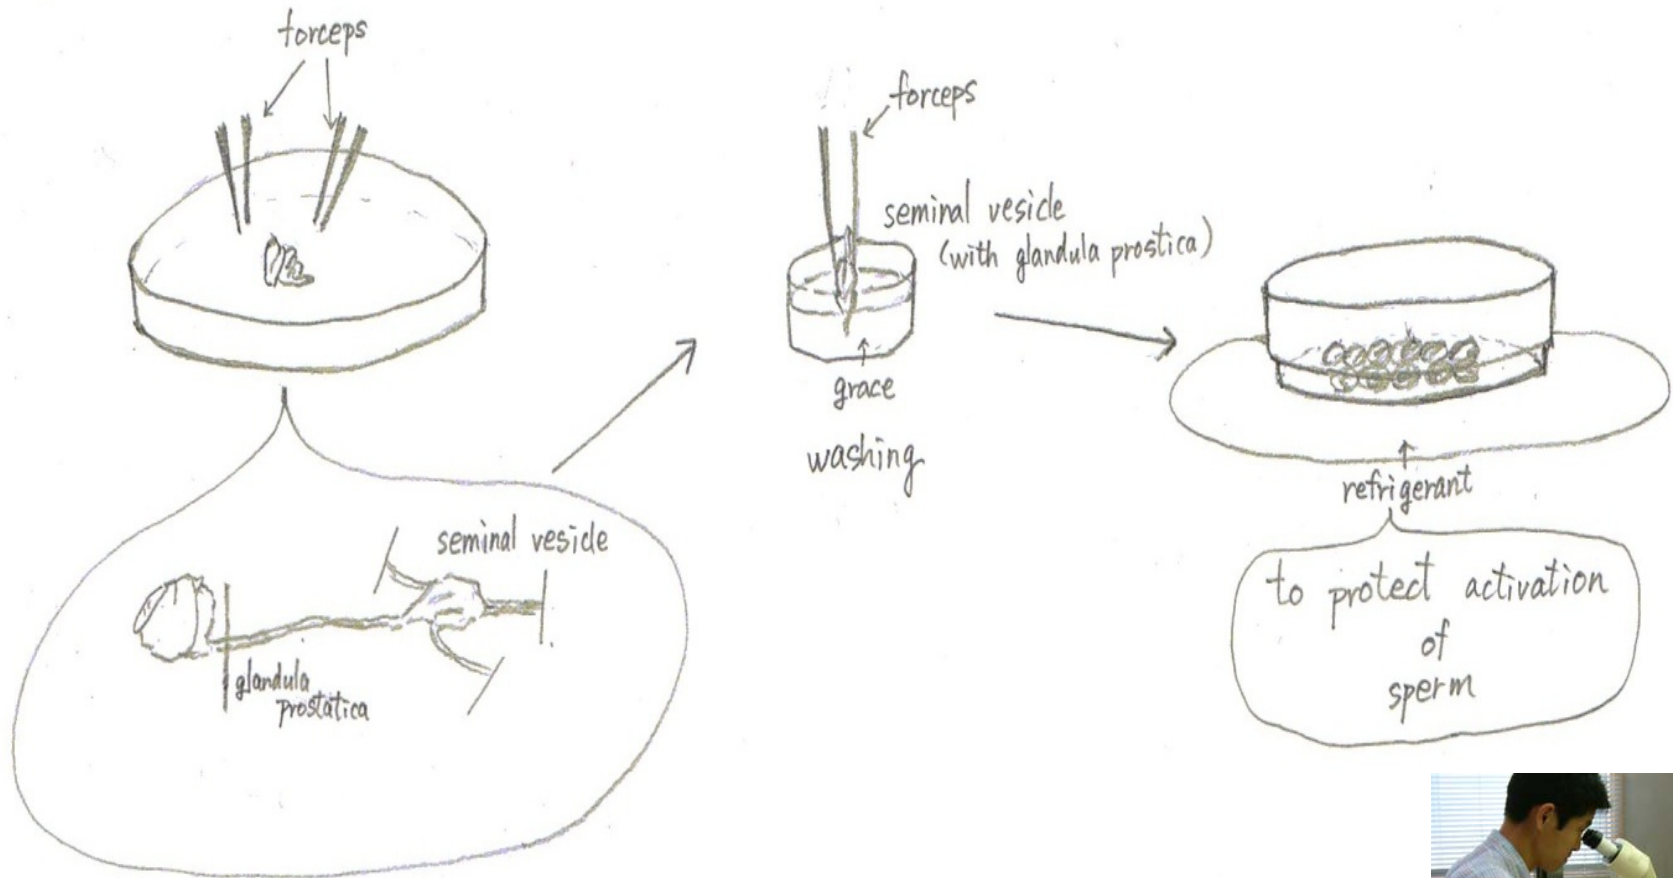 forceps
seminal vesicle
glandula
prostatica
forceps
seminal vesicle
(with glandula prostica)
grace
washing
refrigerant
to protect activation
of
sperm